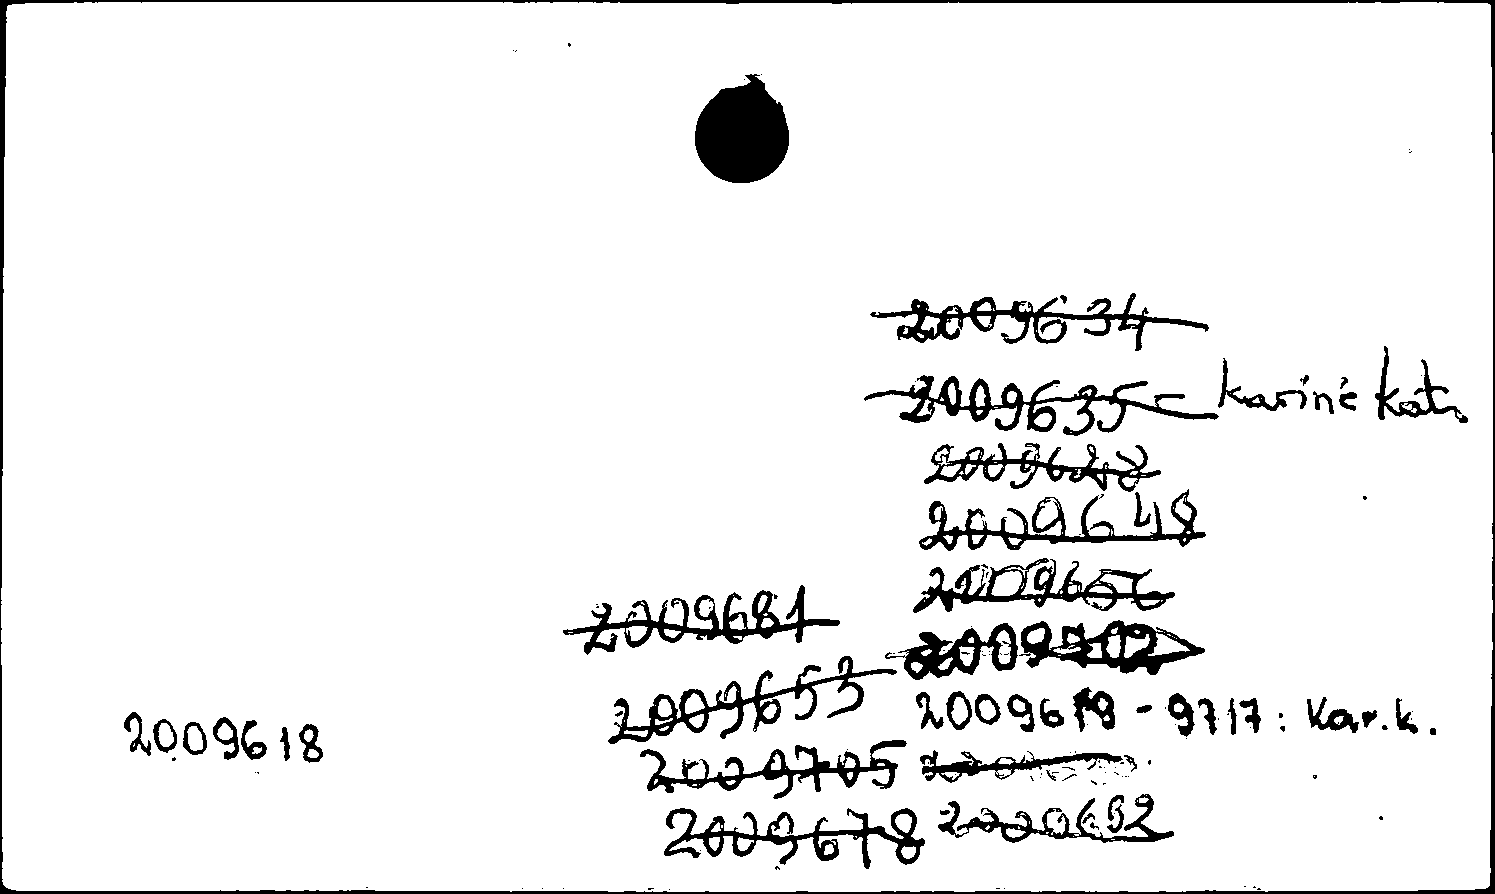 2009634
2009635 - kariné kat.
2009648
2009656
2009681
2009702
2009653
2009679 - 9717: Kar.k.
2009618
2009705
2009678